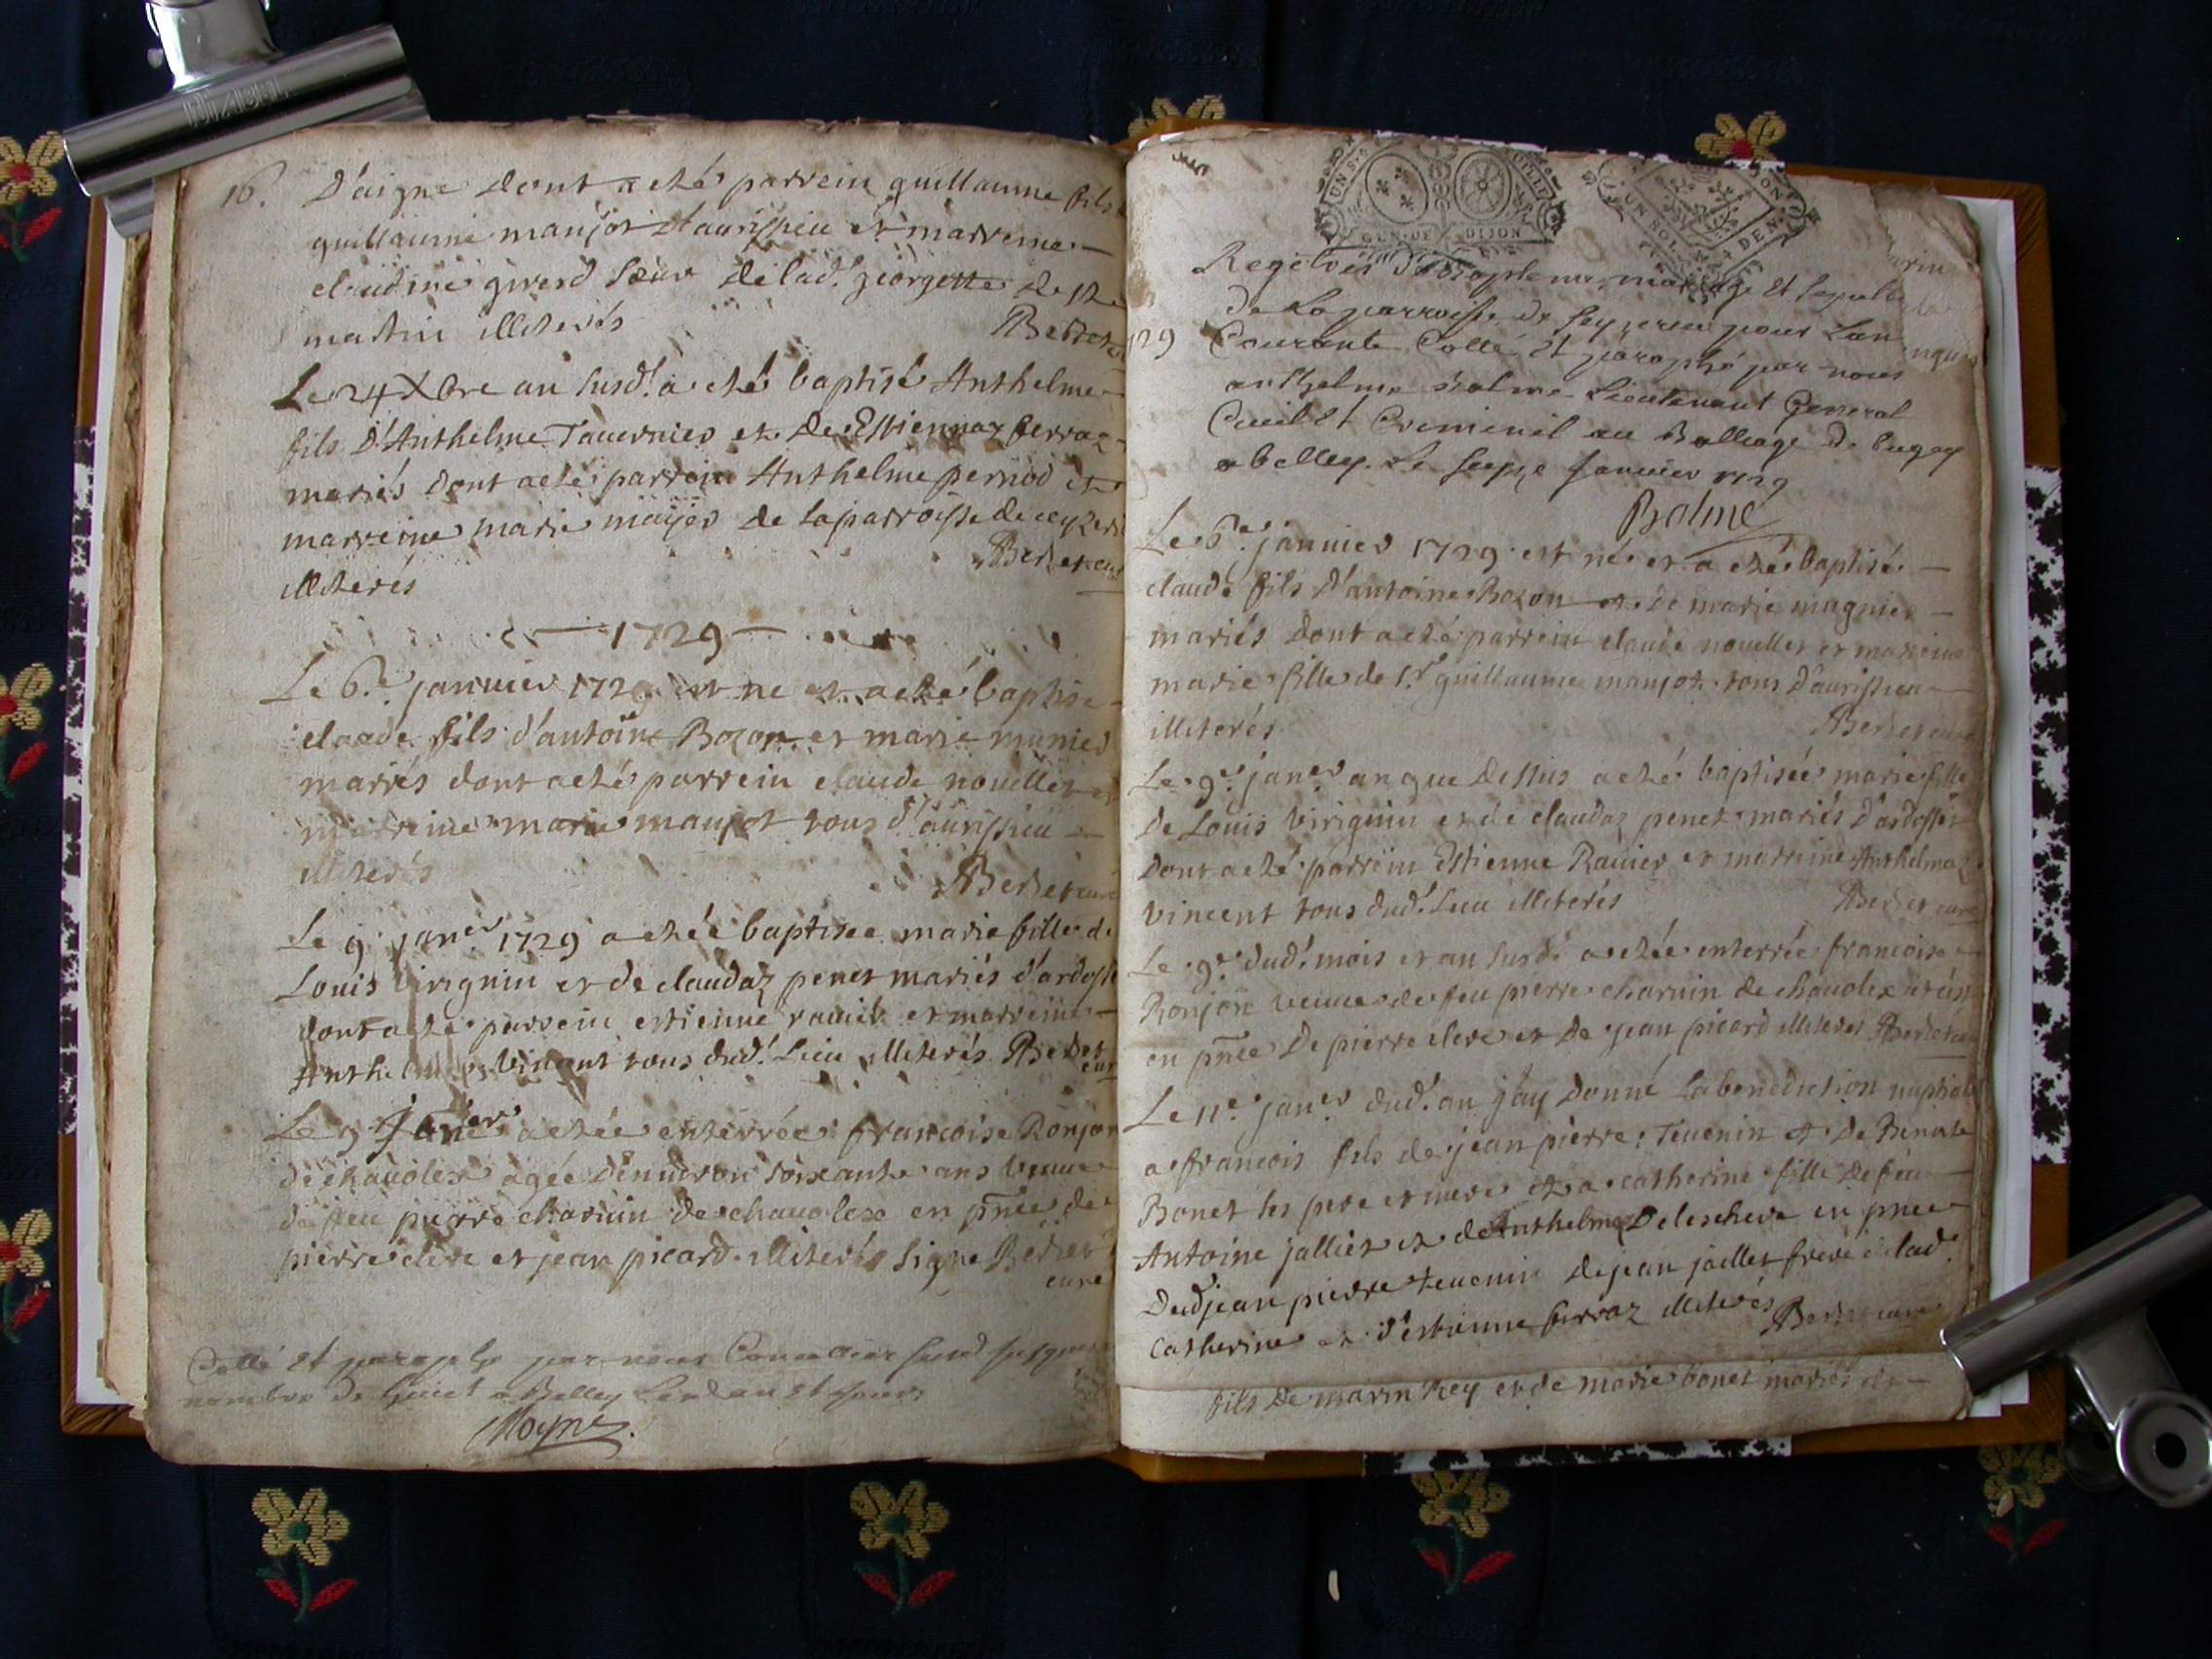 16.
D'aigne dont a eté parrein guillaume fils
guillaume maujot d'aurissieu et marreine
claudine girerd sœur de lad.^t georgette de St
martin illiterés
Berset
Le 24 Xbre an susd.^t a eté baptisé Anthelme
fils D'Anthelme Tavernier et De Estiennaz ferraz
mariés dont a eté parrein Anthelme perriod et
marreine marie de la parroisse de ceyzerieu
illiterés
Berset curé
1729
Le 6.^e janvier 1729 est ne et a eté baptisé
claude fils d'antoine Bozon et marie munier
mariés dont a eté parrein claude novellet et
marreine marie maujot tous d'aurissieu
illiterés
Berset curé
Le 9.^e jan^er 1729 a etée baptisee marie fille de
Louis virignin et de claudaz penet mariés d'ardosse
dont a eté parrein estienne ravier et marreine
vincent tous dud.^t Lieu illiterés Berset
curé
Le 9 Janer a etée enterrée francoise Ronjon
de chavolex agée d'environ soixante ans veuve
de feu pierre charvin de chavolex en pnce de
pierre clere et jean picard illiterés Signe Berset
curé
Cotté et paraphe par nous Conseiller
nombre de huict a Belley Led an et jour
Moyne
UN SOL
GEN. DE DIJON
UN SOL 4 DEN
Registres de Baptemes, mariage et sepult
de La parroisse de Seyzerieu pour Lan
Courante Cotté et paraphé par nous
anthelme balme Lieutenant General
Civil et Criminel au Balliage de bugey
a belley Le janvier 1729
Balme
29
Le 6^e janvier 1729 est né et a eté baptisé
claude fils d'antoine Bozon et de marie magnier
mariés dont a eté parrein claude novellet et marreine
marie fille de S.^r guillaume maujot tous d'aurissieu
illiterés
Berset curé
Le 9.^e jan^er an que dessus a eté baptisée marie fille
de Louis virignin et de claudaz penet mariés d'ardosset
Dont a eté parrein Estienne Ravier et marreine Anthelmaz
vincent tous dud.^t Lieu illiterés
Berset curé
Le 9.^e dud.^t mois et an susd.^t a etée enterrée francoise
Ronjon veuve de feu pierre charvin de chavolex
en pnce De pierre clere et de jean picard illiteres Berset curé
Le 11.^e jan^er dud.^t an j'ay Donné La benediction nuptiale
a francois fils de jean pierre Tevenin et de Benoite
Bonet ses pere et mere et a catherine fille De feu
Antoine jallier et de Anthelmaz Deleschere en pnce
Dud jean pierre tevenin de jean jaillet frere de lad.^t
catherine et d'estienne ferraz illiterés Berset curé
fils De marin Rey et de marie bonet mariés de